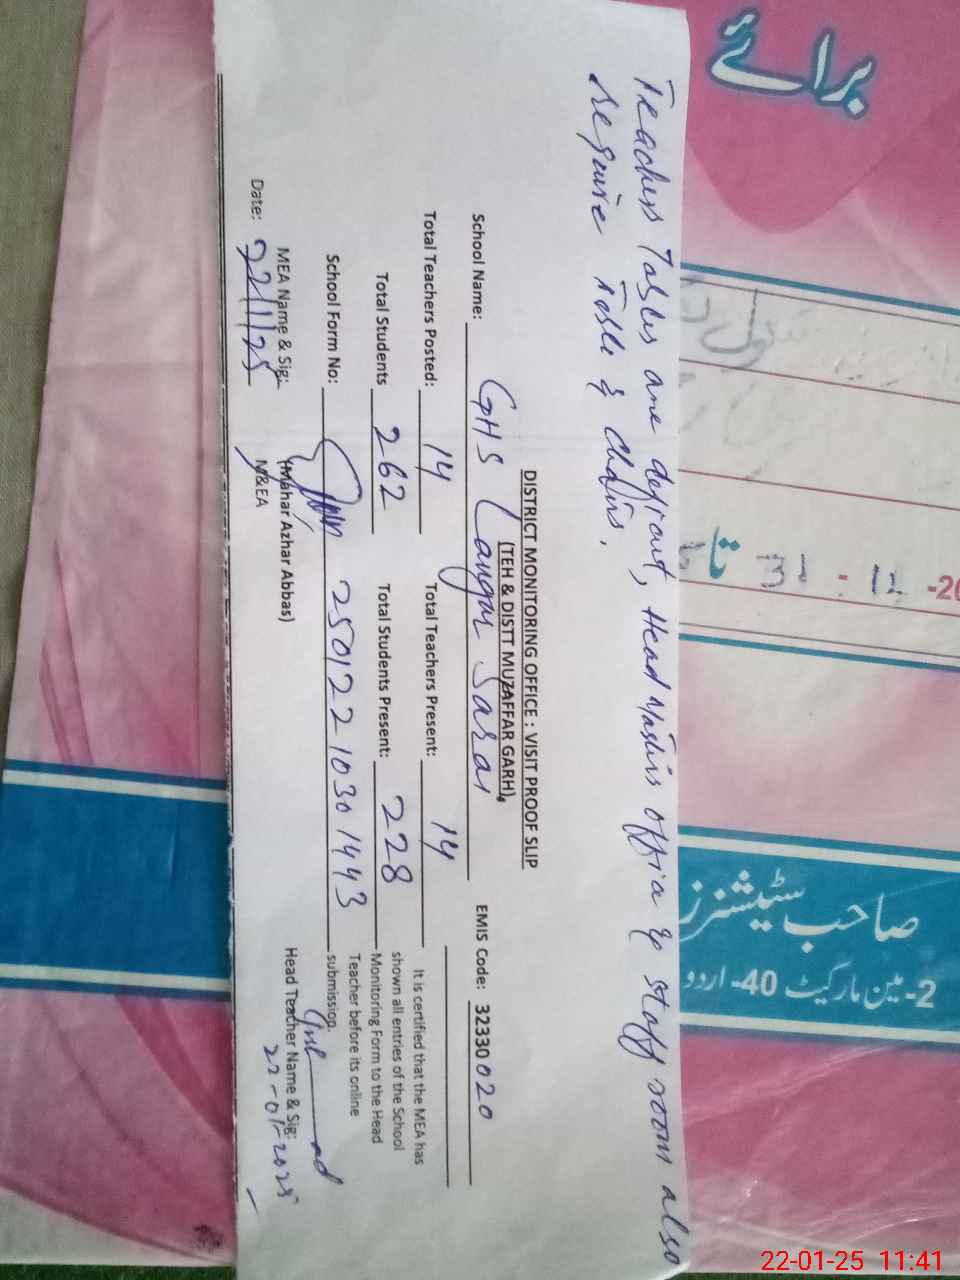 Teachers Tables are deficit, Head Masters office & staff room also
require Table & chairs.
DISTRICT MONITORING OFFICE : VISIT PROOF SLIP
(TEH & DISTT MUZAFFAR GARH),
School Name: GHS Langar Sarai EMIS Code: 32330020
Total Teachers Posted: 14 Total Teachers Present: 14
Total Students 262 Total Students Present: 228
School Form No: 25012210301443
It is certified that the MEA has
shown all entries of the School
Monitoring Form to the Head
Teacher before its online
submission.
MEA Name & Sig:
(Mahar Azhar Abbas)
M&EA
Date: 22/1/25
Head Teacher Name & Sig:
22-01-2025
برائے
تا 31 : 12 -20
صاحب سٹیشنرز
2-مین مارکیٹ 40- اردو
22-01-25 11:41